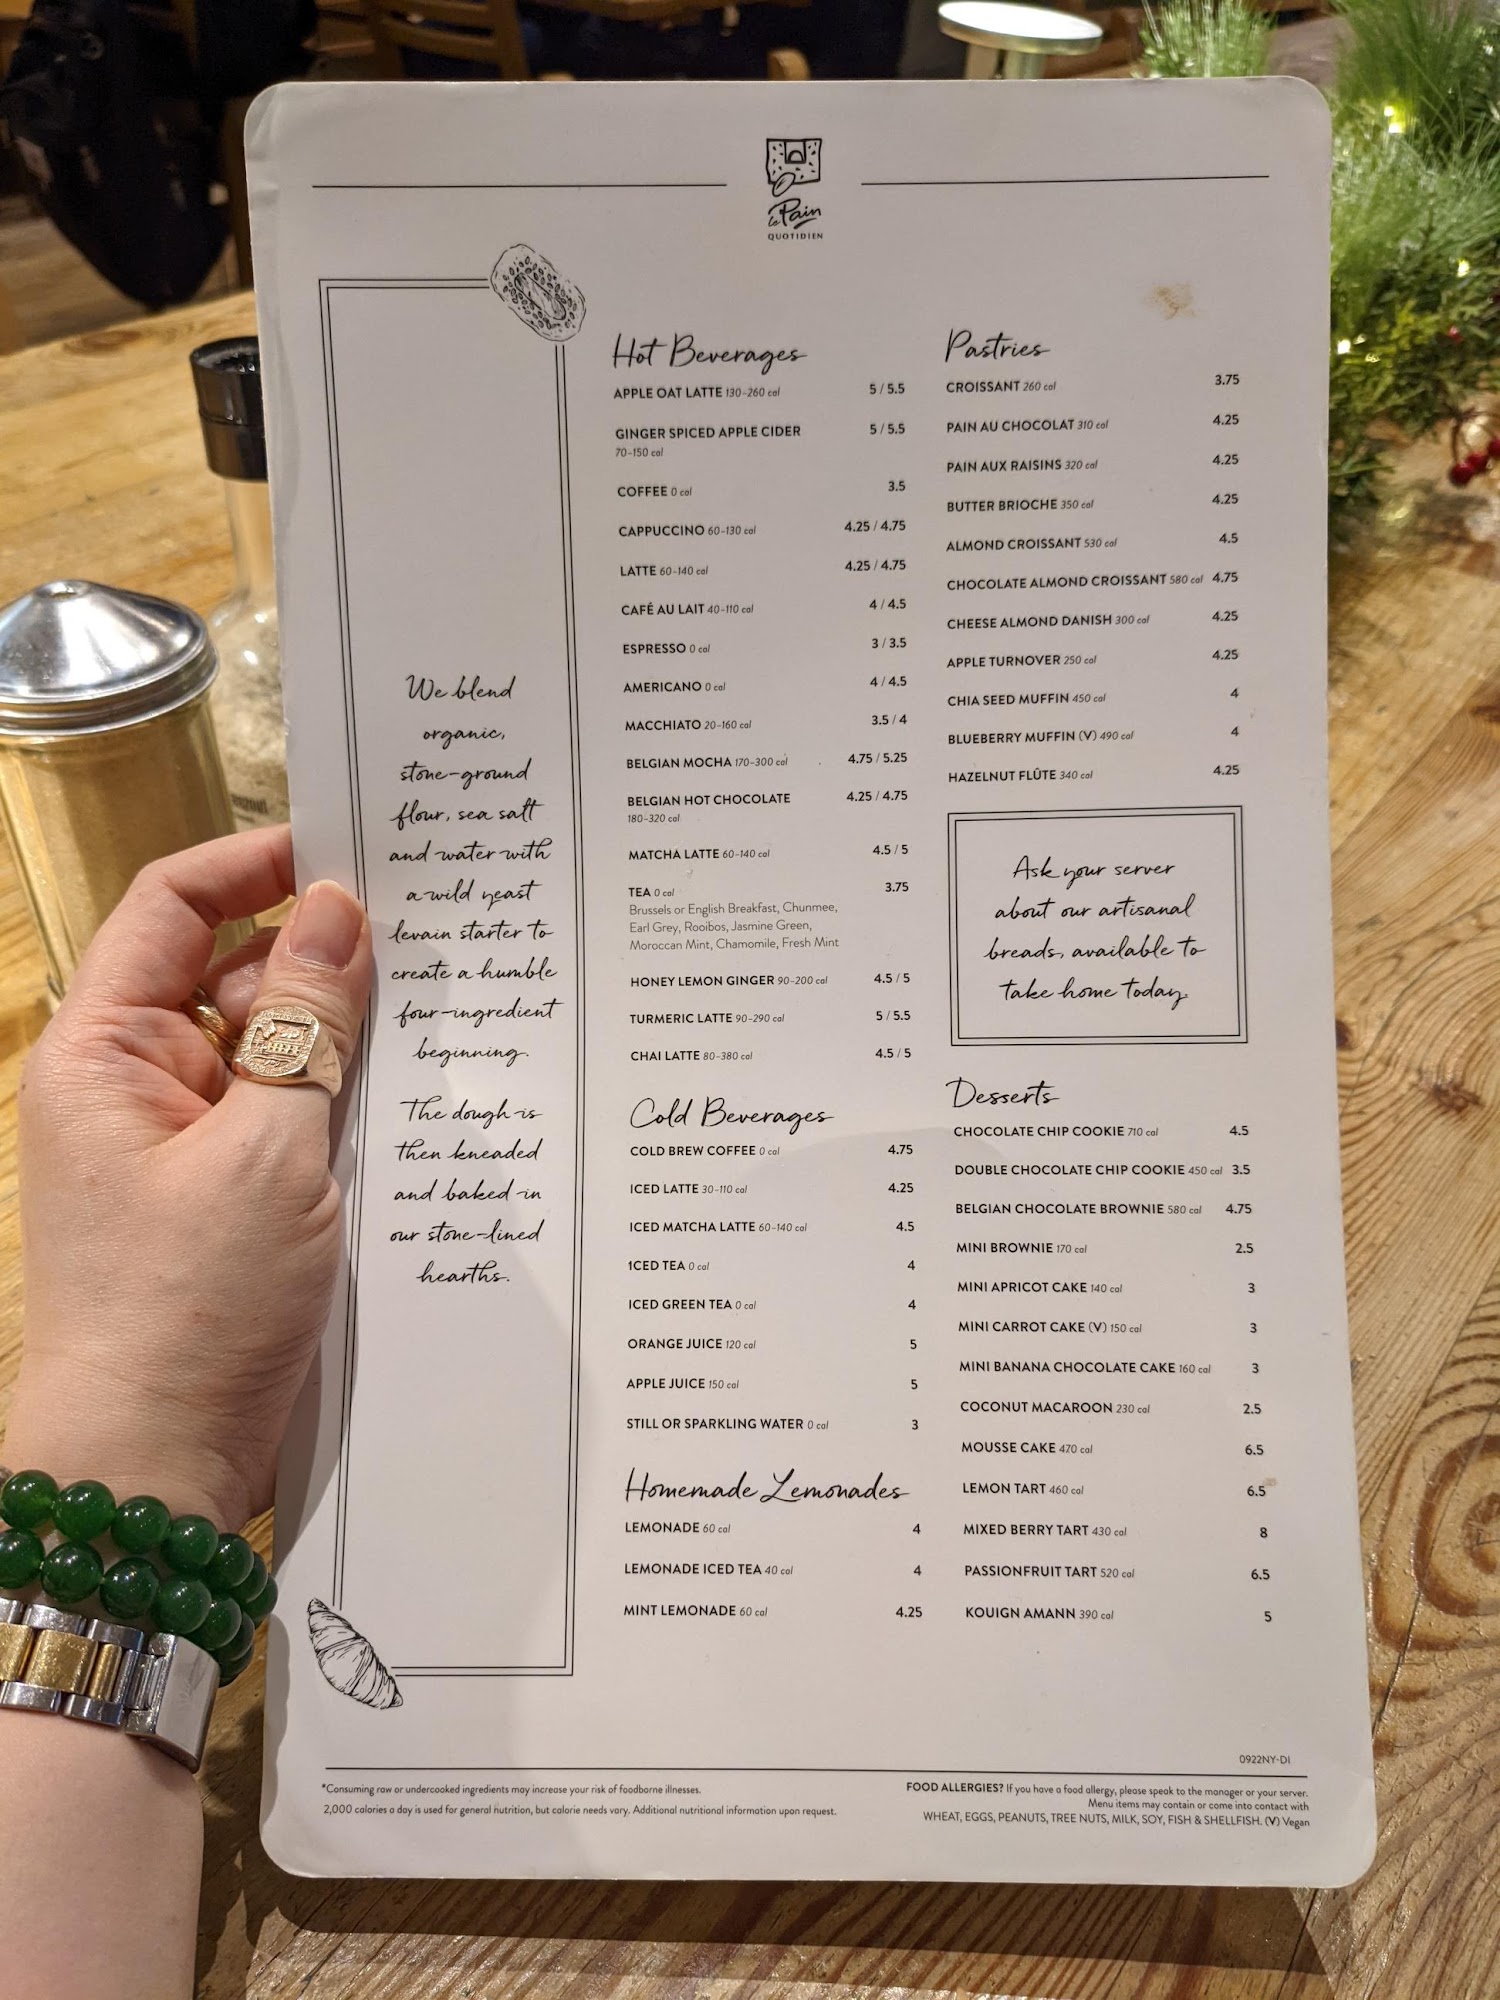 le Pain
QUOTIDIEN
We blend
organic,
stone-ground
flour, sea salt
and water with
a wild yeast
levain starter to
create a humble
four-ingredient
beginning.
The dough is
then kneaded
and baked in
our stone-lined
hearths.
Hot Beverages
APPLE OAT LATTE 130-260 cal 5 / 5.5
GINGER SPICED APPLE CIDER 5 / 5.5
70-150 cal
COFFEE 0 cal 3.5
CAPPUCCINO 60-130 cal 4.25 / 4.75
LATTE 60-140 cal 4.25 / 4.75
CAFÉ AU LAIT 40-110 cal 4 / 4.5
ESPRESSO 0 cal 3 / 3.5
AMERICANO 0 cal 4 / 4.5
MACCHIATO 20-160 cal 3.5 / 4
BELGIAN MOCHA 170-300 cal 4.75 / 5.25
BELGIAN HOT CHOCOLATE 4.25 / 4.75
180-320 cal
MATCHA LATTE 60-140 cal 4.5 / 5
TEA 0 cal 3.75
Brussels or English Breakfast, Chunmee,
Earl Grey, Rooibos, Jasmine Green,
Moroccan Mint, Chamomile, Fresh Mint
HONEY LEMON GINGER 90-200 cal 4.5 / 5
TURMERIC LATTE 90-290 cal 5 / 5.5
CHAI LATTE 80-380 cal 4.5 / 5
Cold Beverages
COLD BREW COFFEE 0 cal 4.75
ICED LATTE 30-110 cal 4.25
ICED MATCHA LATTE 60-140 cal 4.5
1CED TEA 0 cal 4
ICED GREEN TEA 0 cal 4
ORANGE JUICE 120 cal 5
APPLE JUICE 150 cal 5
STILL OR SPARKLING WATER 0 cal 3
Homemade Lemonades
LEMONADE 60 cal 4
LEMONADE ICED TEA 40 cal 4
MINT LEMONADE 60 cal 4.25
Pastries
CROISSANT 260 cal 3.75
PAIN AU CHOCOLAT 310 cal 4.25
PAIN AUX RAISINS 320 cal 4.25
BUTTER BRIOCHE 350 cal 4.25
ALMOND CROISSANT 530 cal 4.5
CHOCOLATE ALMOND CROISSANT 580 cal 4.75
CHEESE ALMOND DANISH 300 cal 4.25
APPLE TURNOVER 250 cal 4.25
CHIA SEED MUFFIN 450 cal 4
BLUEBERRY MUFFIN (V) 490 cal 4
HAZELNUT FLÛTE 340 cal 4.25
Ask your server
about our artisanal
breads, available to
take home today.
Desserts
CHOCOLATE CHIP COOKIE 710 cal 4.5
DOUBLE CHOCOLATE CHIP COOKIE 450 cal 3.5
BELGIAN CHOCOLATE BROWNIE 580 cal 4.75
MINI BROWNIE 170 cal 2.5
MINI APRICOT CAKE 140 cal 3
MINI CARROT CAKE (V) 150 cal 3
MINI BANANA CHOCOLATE CAKE 160 cal 3
COCONUT MACAROON 230 cal 2.5
MOUSSE CAKE 470 cal 6.5
LEMON TART 460 cal 6.5
MIXED BERRY TART 430 cal 8
PASSIONFRUIT TART 520 cal 6.5
KOUIGN AMANN 390 cal 5
0922NY-DI
*Consuming raw or undercooked ingredients may increase your risk of foodborne illnesses.
2,000 calories a day is used for general nutrition, but calorie needs vary. Additional nutritional information upon request.
FOOD ALLERGIES? If you have a food allergy, please speak to the manager or your server.
Menu items may contain or come into contact with
WHEAT, EGGS, PEANUTS, TREE NUTS, MILK, SOY, FISH & SHELLFISH. (V) Vegan